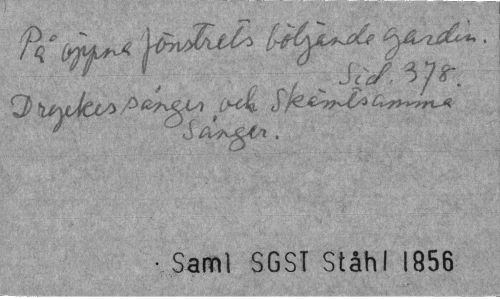 På öppna fönstrets böljande gardin.
Sid. 378.
Dryckessånger och Skämtsamma
Sånger.
Saml SGST Ståhl 1856